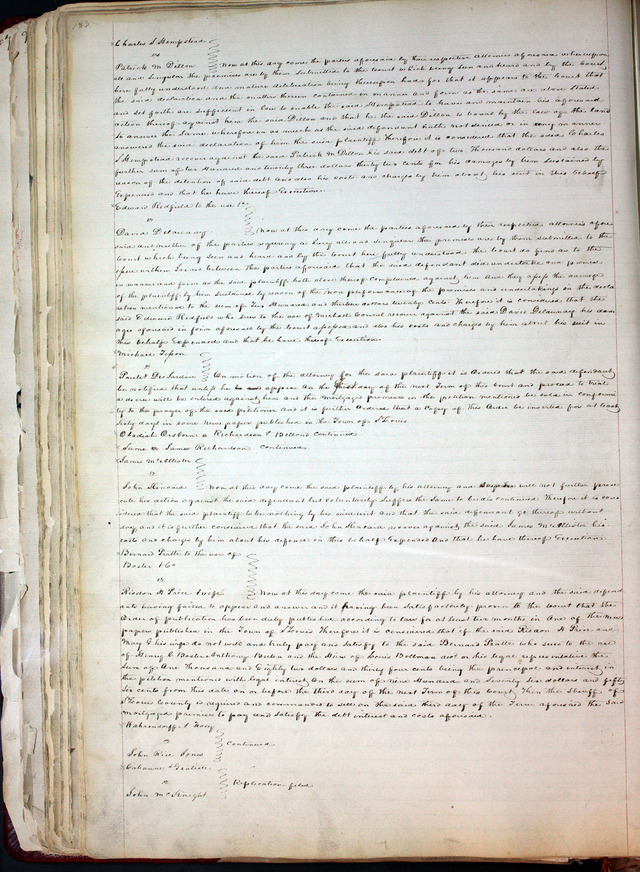 182
Charles S Hempstead
vs
Patrick M Dillon Now at this day come the parties aforesaid by their respective attornies aforesaid whereupon
all and singular the premises are by them submitted to the Court which being seen and heard and by the Court
here fully understood and mature deliberation being thereupon had for that it appears to the Court that
the said declaration and the matters therein contained in manner and form as the same are above stated
and set forth are sufficient in law to enable the said Hempstead to have and maintain his aforesaid
action thereof against him the said Dillon and that he the said Dillon is bound by the law of the land
to answer the same wherefore in as much as the said defendant hath not denied or in any manner
answered the said declaration of him the said plaintiff Therefore it is considered that the said Charles
S Hempstead recover against the said Patrick M Dillon his said debt of two Thousand dollars and also the
further sum of two Hundred and twenty three dollars thirty two cents for his damages by him sustained by
reason of the detention of said debt and also his costs and charges by him about his suit in this behalf
Expended and that he have thereof Execution.
Edward Redfield to the use &c
vs
David Delaunay Now at this day come the parties aforesaid by their respective attornies afore
said and neither of the parties requiring a Jury all and singular the premises are by them submitted to the
Court which being seen and heard and by the Court here fully understood the Court do find as to the
issue within Joined between the parties aforesaid that the said defendant did undertake and promise
in manner and form as the said plaintiff hath above thereof complained against him And they assess the damage
of the plaintiff by him sustained by reason of the non performance of the promises and undertakings in the decla
ration mentioned to the sum of Two Hundred and thirteen dollars twenty cents. Therefore it is considered that the
said Edward Redfield who sues to the use of Michael recover against the said David Delaunay his dam
ages aforesaid in form aforesaid by the Court assessed and also his costs and charges by him about his suit in
this behalf Expended and that he have thereof Execution.
Michael Tesson
vs
Paulet DesJardin On motion of the attorney for the said plaintiff it is Ordered that the said defendant
be notified that unless he appear on the first day of the next Term of this Court and proceed to trial
a decree will be entered against him and the mortgaged premises in the petition mentioned be sold in conformi
ty to the prayer of the said petitioner and it is further Ordered that a Copy of this Order be inserted for at least
Sixty days in some News paper published in the Town of St Louis
Obadiah Osborn a Richardson & Bellows continued
Same vs James Richardson continued
James McAllister
vs
John Kincaid Now at this day come the said plaintiff by his attorney and will not further prose
cute his action against the said defendant but voluntarily suffers the same to be discontinued Therefore it is con
sidered that the said plaintiff take nothing by his suit and that the said defendant go thereof without
day and it is further considered that the said John Kincaid recover against the said James McAllister his
costs and charges by him about his defence in this behalf Expended And that he have thereof Execution
Bernard Pratte to the use of
Boster &c
vs
Risdon H Price & wife Now at this day come the said plaintiff by his attorney and the said defend
ants having failed to appear and answer and it having been Satisfactorily proven to the Court that the
Order of publication has been duly published according to law for at least two months in One of the News
papers published in the Town of St Louis Therefore it is considered that if the said Risdon H Price and
Mary G his wife do not well and truly pay and satisfy to the said Bernard Pratte who sues to the use
of Henry C Boster Anthony and the Heirs of Louis Bollman dcd or his legal representatives the
sum of One Thousand and Eighty two dollars and thirty four cents being the principal and interest in
the petition mentioned with legal interest On the sum of Nine Hundred and seventy six dollars and fifty
six cents from this date on or before the third day of the next Term of this Court, Then the Sheriff of
St Louis County is required and commanded to sell on the said third day of the Term aforesaid the said
mortgaged premises to pay and satisfy the debt interest and costs aforesaid.
Wahrendorff & Tracy
vs Continued
John Rice Jones
Cabanne &
vs Replication filed
John McKnight